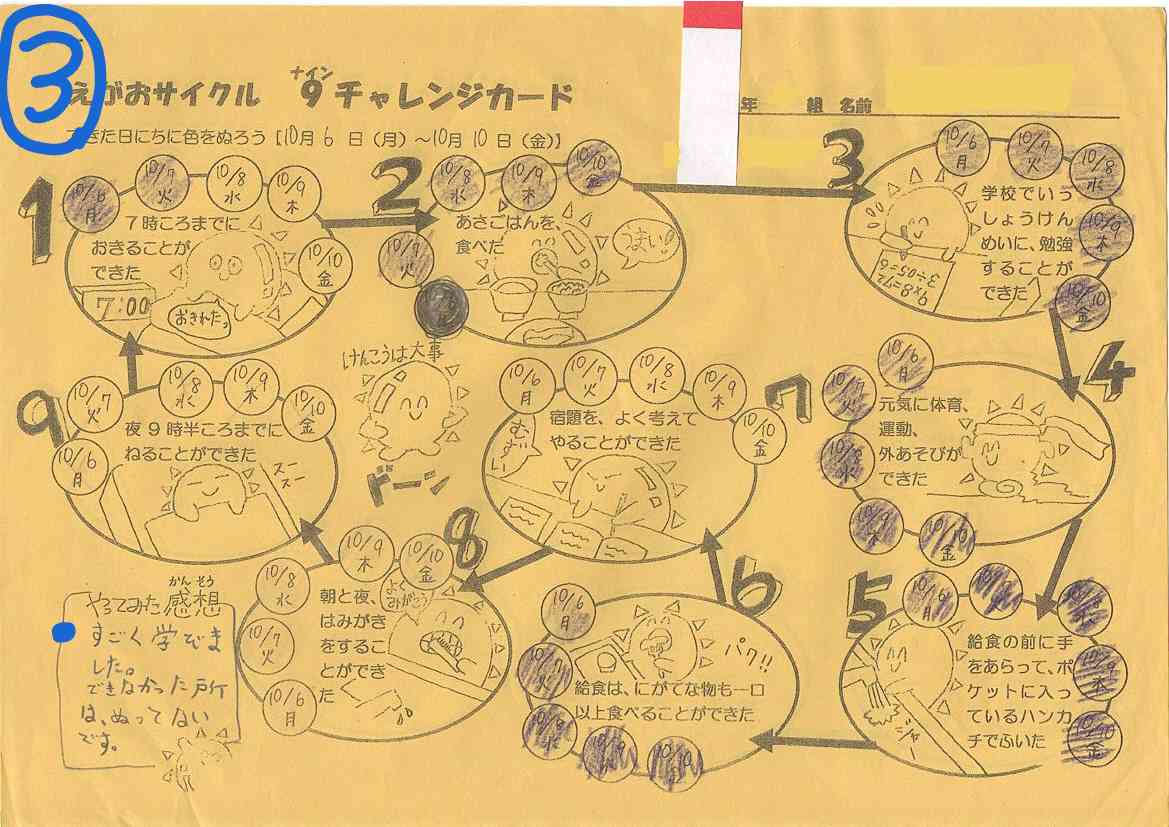 ③
えがおサイクル 9チャレンジカード
ナイン
年 組 名前
できた日にちに色をぬろう【10月6日(月)~10月10日(金)】
1
10/6 月
10/7 火
10/8 水
10/9 木
10/10 金
7時ころまでに
おきることが
できた
7:00
おきれたっ
2
10/7 火
10/8 水
10/9 木
10/10 金
あさごはんを、
食べた
うまい!!
3
10/6 月
10/7 火
10/8 水
10/9 木
10/10 金
学校でいっ
しょうけん
めいに、勉強
することが
できた
9×8=72
4
10/6 月
10/7 火
10/8 水
木
10/10 金
元気に体育、
運動、
外あそびが
できた
5
10/6 月
10/9 木
10/10 金
給食の前に手
をあらって、ポ
ケットに入っ
ているハンカ
チでふいた
ジャー
6
10/6 月
10/7 火
パク!!
給食は、にがてな物も一口
以上食べることができた
7
10/6 月
10/7 火
10/8 水
10/9 木
10/10 金
宿題を、よく考えて
やることができた
むずい
8
10/6 月
10/7 火
10/8 水
10/9 木
10/10 金
よく
みがこう
朝と夜、
はみがき
をするこ
とができ
た
9
10/6 月
10/7 火
10/8 水
10/9 木
10/10 金
夜9時半ころまでに
ねることができた
スー
スー
けんこうは大事
ドーン
かんそう
やってみた感想
すごく学びま
した。
できなかった所
は、ぬってない
です。